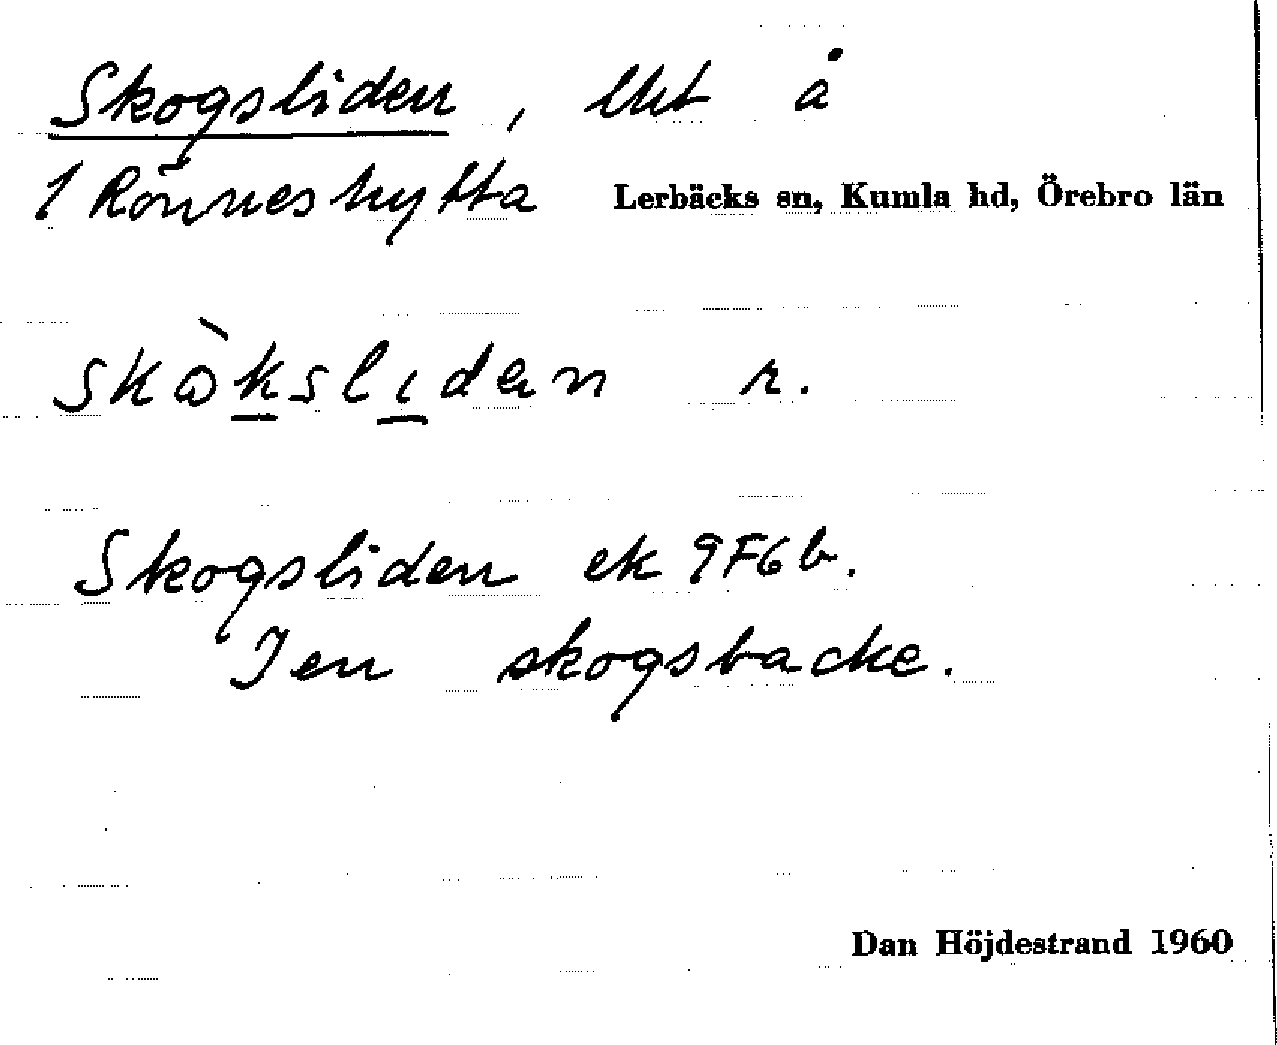 Skogsliden, lht å
1 Rönneshytta Lerbäcks sn, Kumla hd, Örebro län
skòkslıdan r.
Skogsliden ek 9F6b.
I en skogsbacke.
Dan Höjdestrand 1960